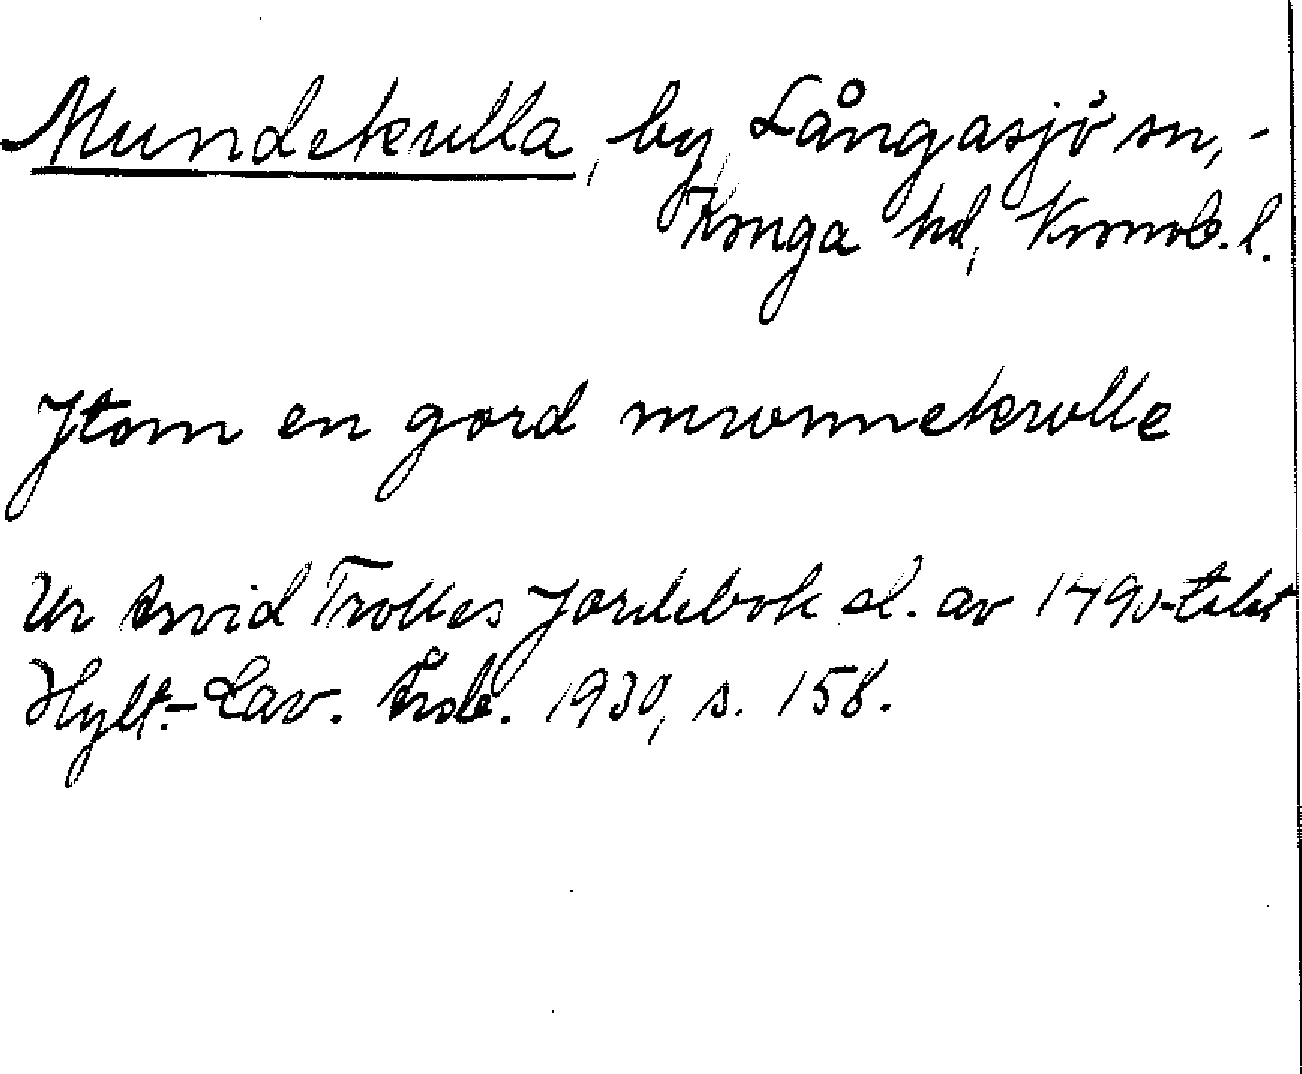 Mundekulla, by, Långasjö sn, -
Konga hd, Kronob. l.
Jtom en gord mwnnekwlle
Ur Arvid Trolles Jordebok sl. av 1490-talet
Hylt.-Cav. Årsb. 1930, s. 158.